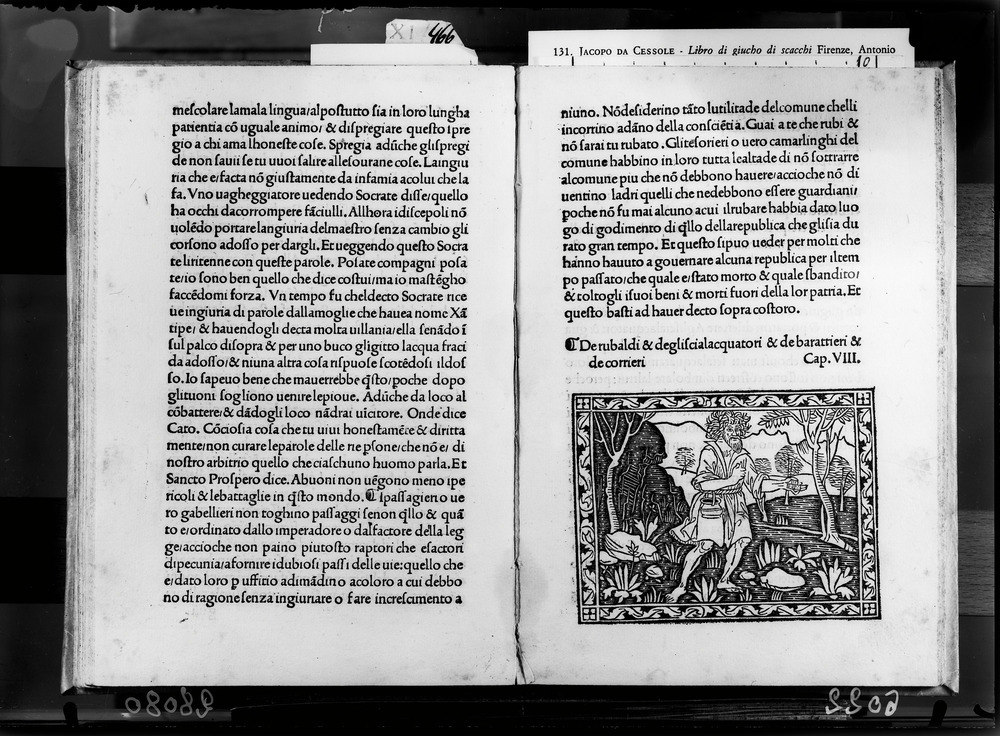 XI 466
131. JACOPO DA CESSOLE - Libro di giucho di scacchi Firenze, Antonio
10
meſcolare lamala lingua/alpoſtutto ſia in loro lungha
patientia cō uguale animo/ & diſpregiare queſto ſpre
gio a chi ama lhoneſte coſe. Spregia adūche gliſpregi
de non ſauii ſe tu uuoi ſalire alleſourane coſe. Laingiu
ria che e/facta nō giuſtamente da infamia acolui che la
fa. Vno uagheggiatore uedendo Socrate diſſe/quello
ha occhi dacorrompere fāciulli. Allhora idiſcepoli nō
uolēdo portare langiuria delmaeſtro ſenza cambio gli
corſono adoſſo per dargli. Et ueggendo queſto Socra
te liritenne con queſte parole. Poſate compagni poſa
te/io ſono ben quello che dice coſtui/ma io maſtēgho
faccēdomi forza. Vn tempo fu cheldecto Socrate rice
ue ingiuria di parole dallamoglie che hauea nome Xā
tipe/ & hauendogli decta molta uillania/ella ſenādo ī
ſul palco diſopra & per uno buco gligitto lacqua fraci
da adoſſo/& niuna altra coſa riſpuoſe ſcotēdoſi ildoſ
ſo. Io ſapeuo bene che mauerrebbe q̄ſto/poche dopo
glituoni ſogliono uenire lepioue. Adūche da loco al
cōbattere/& dādogli loco nādrai uicitore. Onde dice
Cato. Cōcioſia coſa che tu uiui honeſtamēte & diritta
mente/non curare leparole delle rie pſone/che nō e/ di
noſtro arbitrio quello che ciaſchuno huomo parla. Et
Sancto Proſpero dice. Abuoni non uēgono meno ipe
ricoli & lebattaglie in q̄ſto mondo. ¶ Ipaſſagieri o ue
ro gabellieri non toghino paſſaggi ſenon q̄llo & quā
to e/ordinato dallo imperadore o dalfactore della leg
ge/accioche non paino piutoſto raptori che eſactori
dipecunia/afornire idubioſi paſſi delle uie:quello che
e/dato loro p uffitio adimādino acoloro a cui debbo
no di ragione ſenza ingiuriare o fare increſcimento a
niuno. Nōdeſiderino tāto lutilitade delcomune chelli
incorrino adāno della conſciētia. Guai a te che rubi &
nō ſarai tu rubato. Gliteſorieri o uero camarlinghi del
comune habbino in loro tutta lealtade di nō ſottrarre
alcomune piu che nō debbono hauere/accioche nō di
uentino ladri quelli che nedebbono eſſere guardiani/
poche nō fu mai alcuno acui ilrubare habbia dato luo
go di godimento di q̄llo dellarepublica che gliſia du
rato gran tempo. Et queſto ſipuo ueder per molti che
hānno hauuto a gouernare alcuna republica per iltem
po paſſato/che quale e/ſtato morto & quale ſbandito/
& toltogli iſuoi beni & morti fuori della lor patria. Et
queſto baſti ad hauer decto ſopra coſtoro.
¶ De rubaldi & degliſcialacquatori & de barattieri &
de corrieri Cap. VIII.
98080
6022